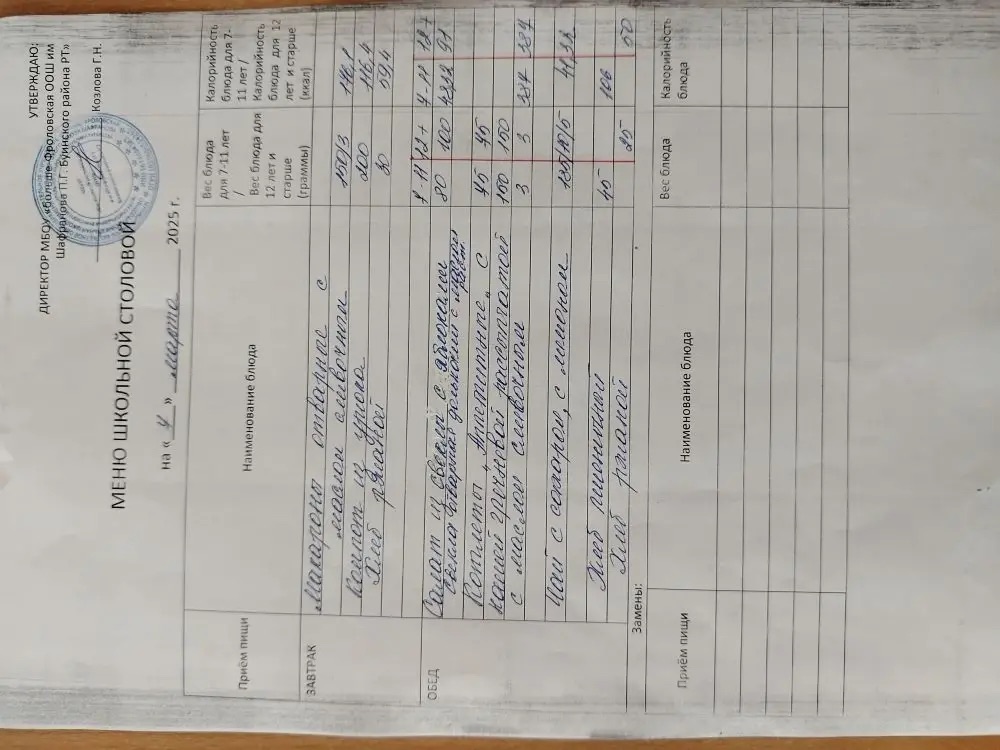 УТВЕРЖДАЮ:
ДИРЕКТОР МБОУ «Больше-Фроловская ООШ им
Шафранова П.Г. Буинского района РТ»
Козлова Г.Н.
МЕНЮ ШКОЛЬНОЙ СТОЛОВОЙ
на « 4 » марта 2025 г.
Приём пищи Наименование блюда Вес блюда для 7-11 лет / Вес блюда для 12 лет и старше (граммы) Калорийность блюда для 7-11 лет / Калорийность блюда для 12 лет и старше (ккал)
ЗАВТРАК
Макароны отварные с
маслом сливочным 150/3
Компот из урюка 200 116,4
Хлеб ржаной 30 59,4
ОБЕД
7-11 12+ 7-11 12+
Салат из свеклы с яблоками 80 100 91
свекла отварная дольками с маслом раст.
Котлеты „Аппетитные" с 45 45
кашей гречневой рассыпчатой 150 150
с маслом сливочным 3 3
Чай с сахаром, с лимоном 41,32
Хлеб пшеничный 45 106
Хлеб ржаной 25 50
Замены:
Приём пищи Наименование блюда Вес блюда Калорийность блюда